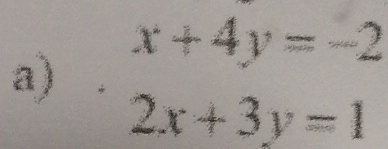 x + 4y = -2
a)
2x + 3y = 1